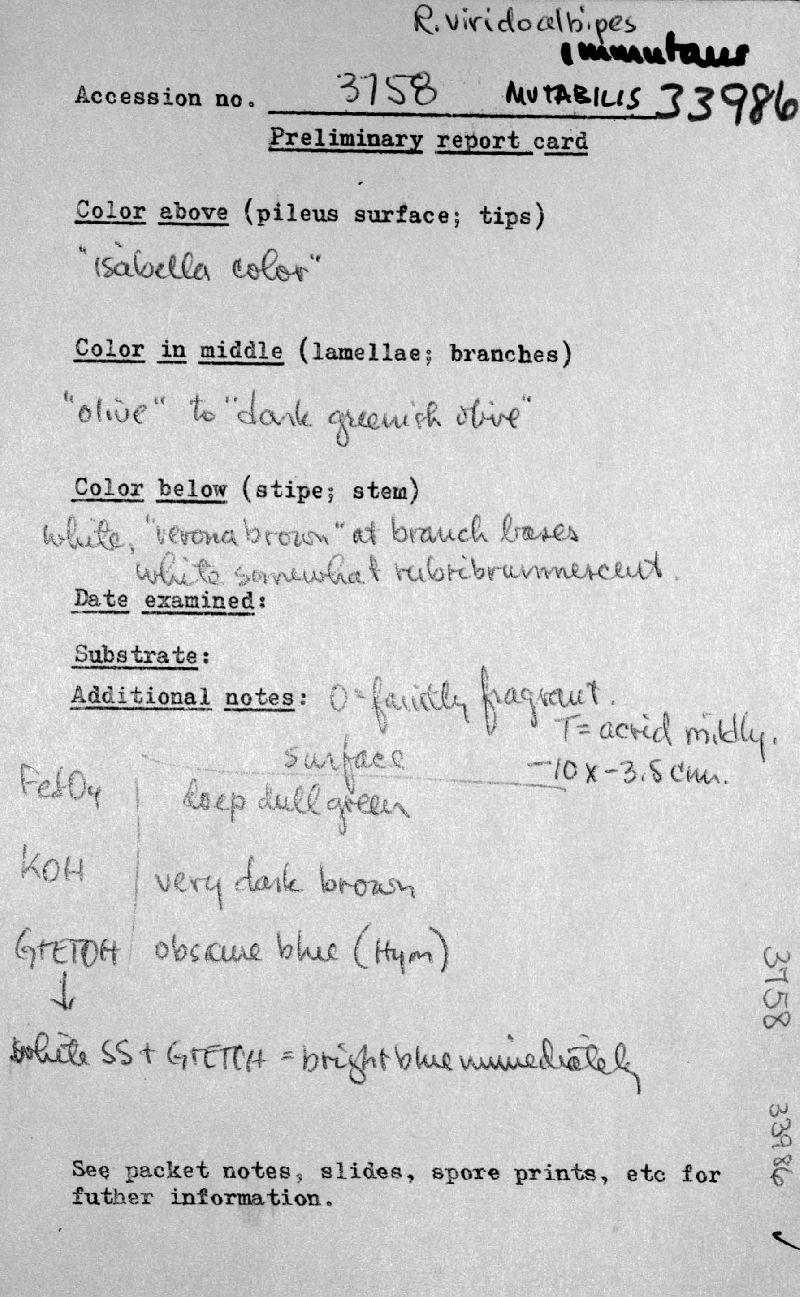 R. viridoalbipes
immutans
Accession no. 3758 MUTABILIS 33986
Preliminary report card
Color above (pileus surface; tips)
"isabella color"
Color in middle (lamellae; branches)
"olive" to "dark greenish olive"
Color below (stipe; stem)
white, "verona brown" at branch bases
white somewhat rubribrunnescent.
Date examined:
Substrate:
Additional notes: O = faintly fragrant.
T = acrid mildly.
-10 x -3.5 cm.
surface
FeSO4 deep dull green
KOH very dark brown
G+ETOH obscure blue (Hym)
↓
white SS + G+ETOH = bright blue immediately
See packet notes, slides, spore prints, etc for
futher information.
3758 33986